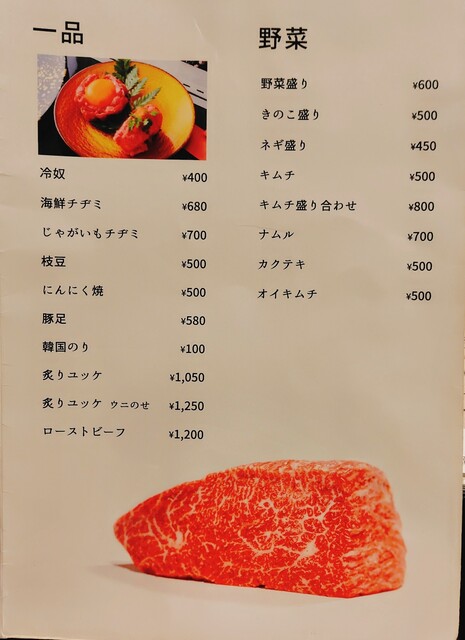 一品
冷奴 ¥400
海鮮チヂミ ¥680
じゃがいもチヂミ ¥700
枝豆 ¥500
にんにく焼 ¥500
豚足 ¥580
韓国のり ¥100
炙りユッケ ¥1,050
炙りユッケ ウニのせ ¥1,250
ローストビーフ ¥1,200
野菜
野菜盛り ¥600
きのこ盛り ¥500
ネギ盛り ¥450
キムチ ¥500
キムチ盛り合わせ ¥800
ナムル ¥700
カクテキ ¥500
オイキムチ ¥500